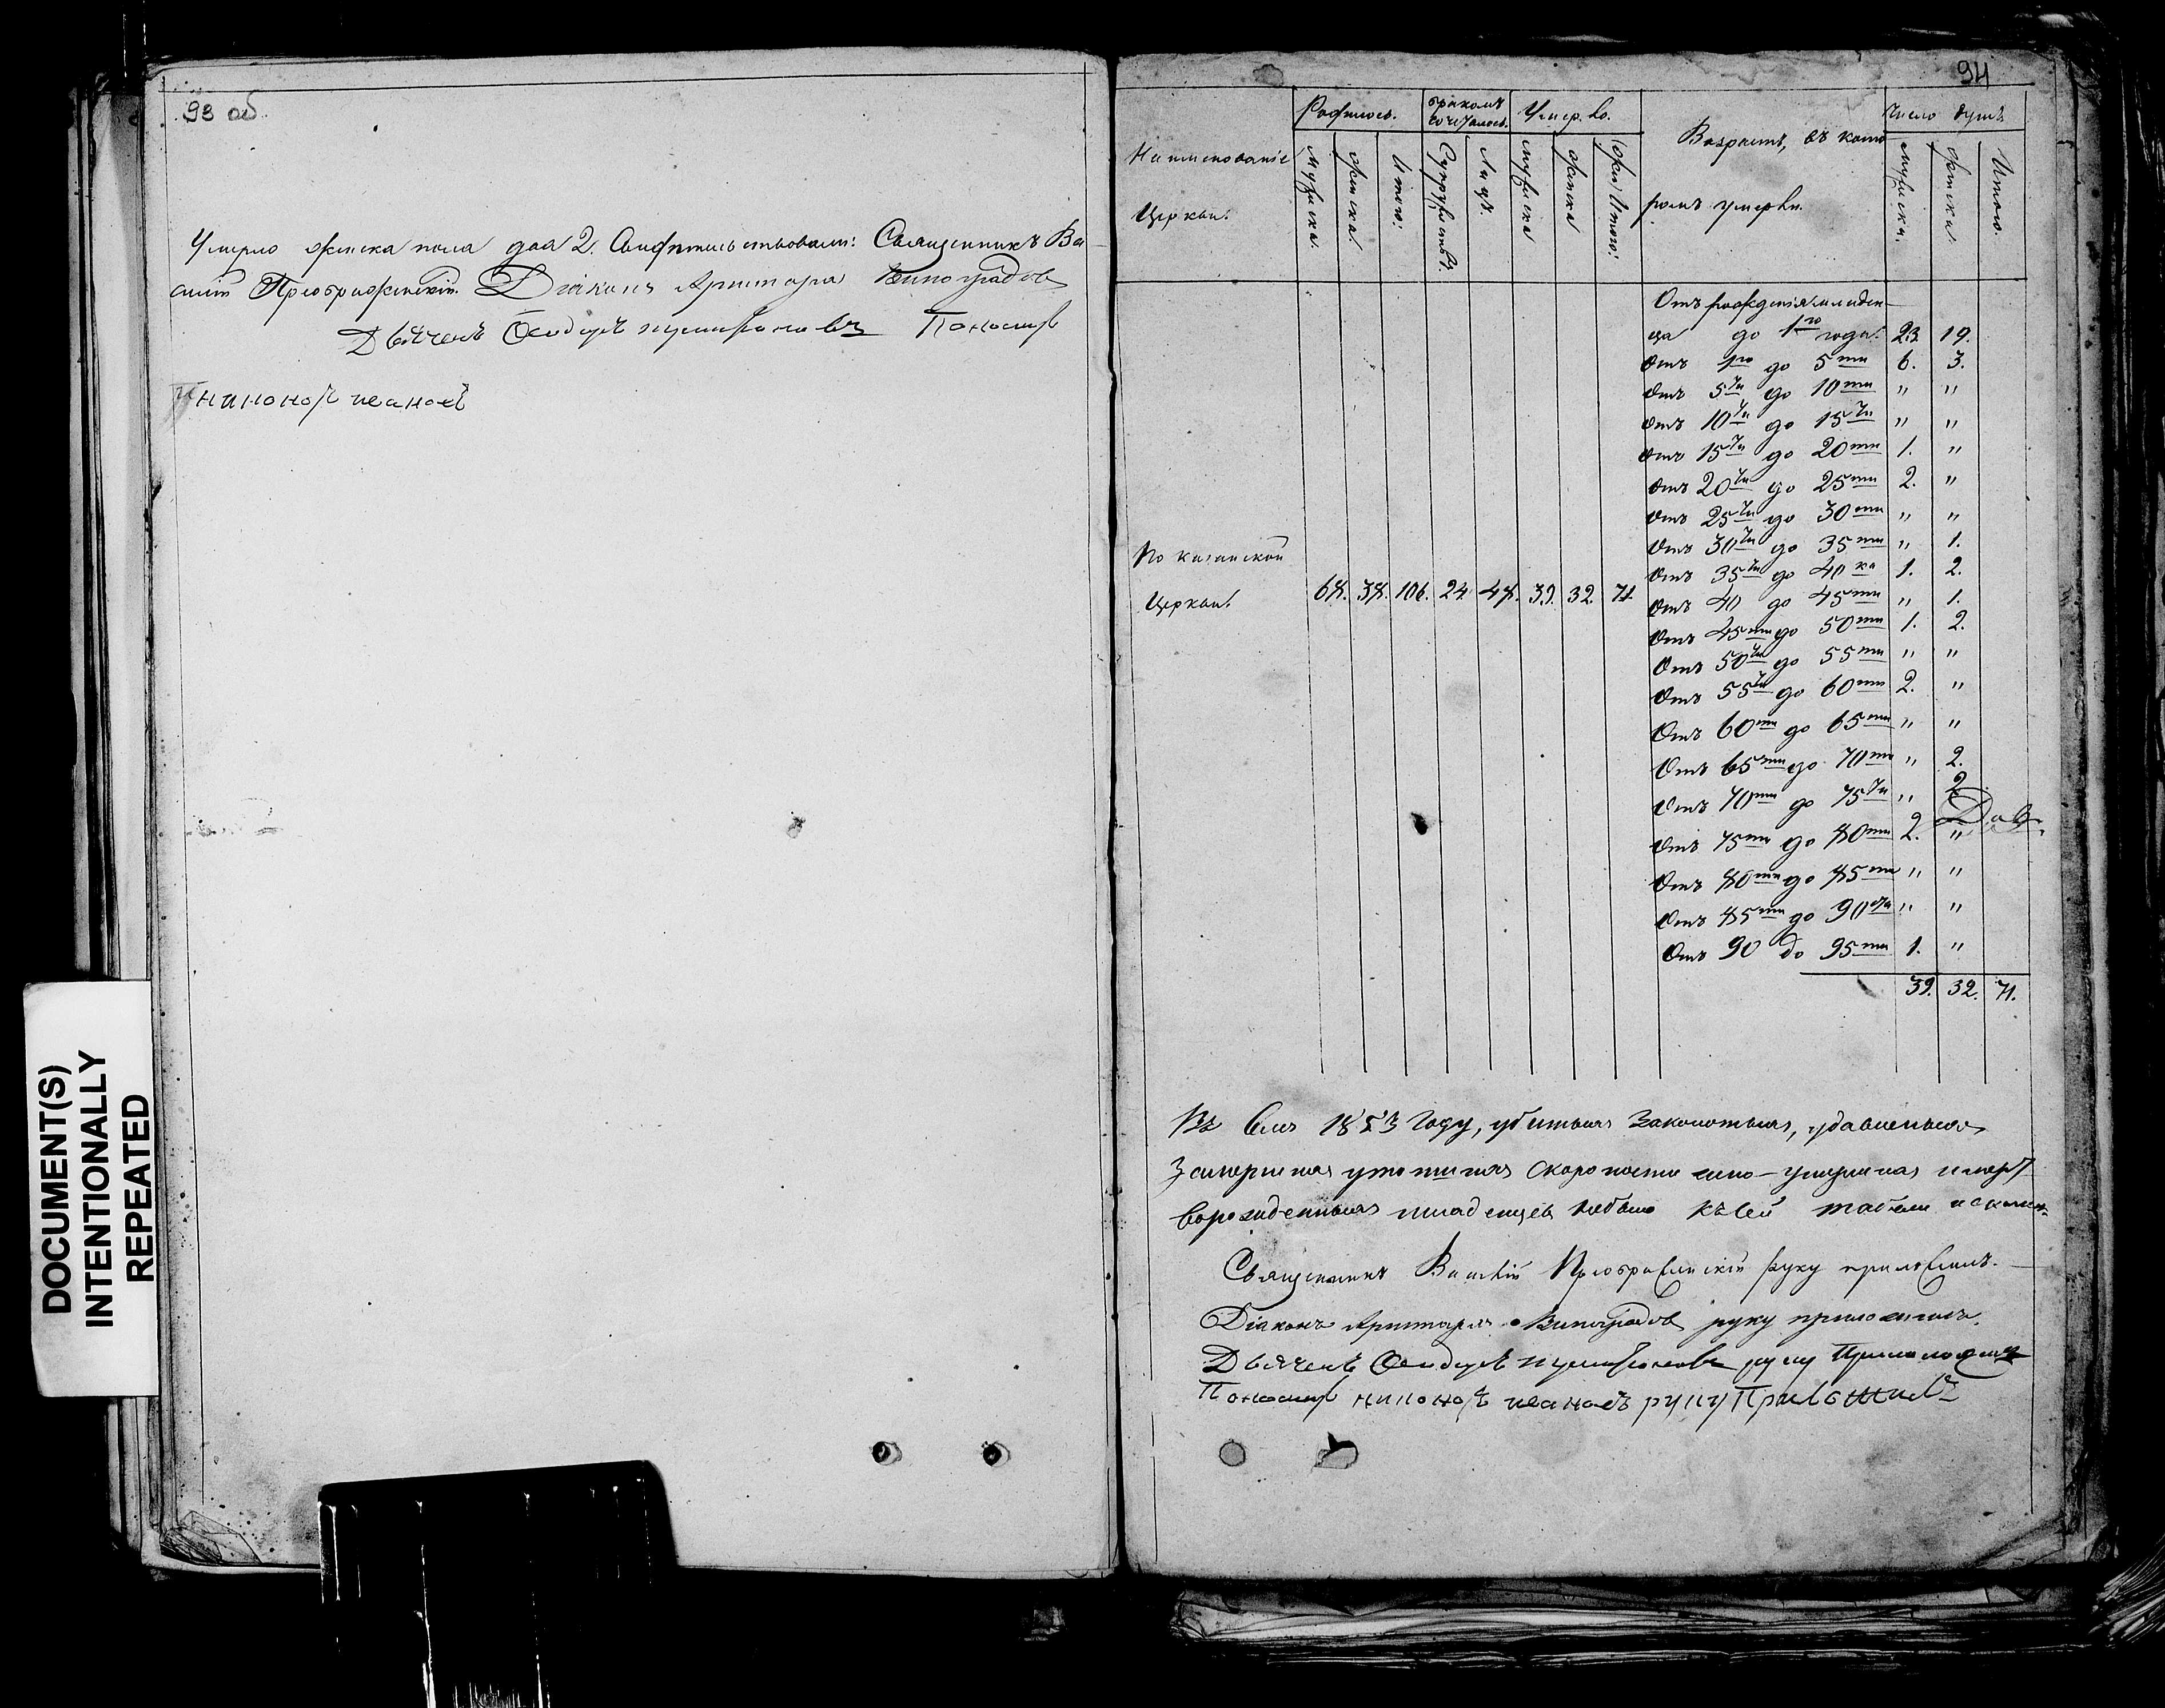 93 об
Умерло женска пола два 2. Свидѣтельствовали: Священникъ Ва-
силій Преображенскій. Діаконъ Аристархъ Виноградовъ
Дьячекъ Пономарь
ивановъ
DOCUMENT(S)
INTENTIONALLY
REPEATED
94
Наименованіе Церкви.
Родилось.
бракомъ сочеталось.
Умерло.
Возрастъ, въ кото-
ромъ умерли.
Число душъ
Мужска. женска. Итого. Супружествъ. Лицъ. мужска женска Итого. мужска. женска. Итого.
Отъ рожденія младен-
ца до 1го года. 23. 19.
Отъ 1го до 5ти 6. 3.
Отъ 5ти до 10ти " "
Отъ 10ти до 15ти " "
Отъ 15ти до 20ти 1. "
Отъ 20ти до 25ти 2. "
Отъ 25ти до 30ти " "
Отъ 30ти до 35ти " 1.
Отъ 35ти до 40ка 1. 2.
По казанской
Церкви. 68. 38. 106. 24. 48. 39. 32. 71.
Отъ 40 до 45ти " 1.
Отъ 45ти до 50ти 1. 2.
Отъ 50ти до 55ти " "
Отъ 55ти до 60ти 2. "
Отъ 60ти до 65ти " "
Отъ 65ти до 70ти " 2.
Отъ 70ти до 75ти " 2
Отъ 75ти до 80ти 2. "
Отъ 80ти до 85ти " "
Отъ 85ти до 90ти " "
Отъ 90 до 95ти 1. "
39. 32. 71.
Въ семъ 1853 году, убитыхъ Заколотыхъ, удавленныхъ
Замерзшихъ утопшихъ Скоропостижно-умершихъ и мерт
ворожденныхъ младенцевъ небыло къ сей табели
Священникъ Василій Преображенскій руку приложилъ.
Діаконъ Аристархъ Виноградовъ руку приложилъ.
Дьячекъ руку Приложилъ
Пономарь ивановъ руку Приложилъ